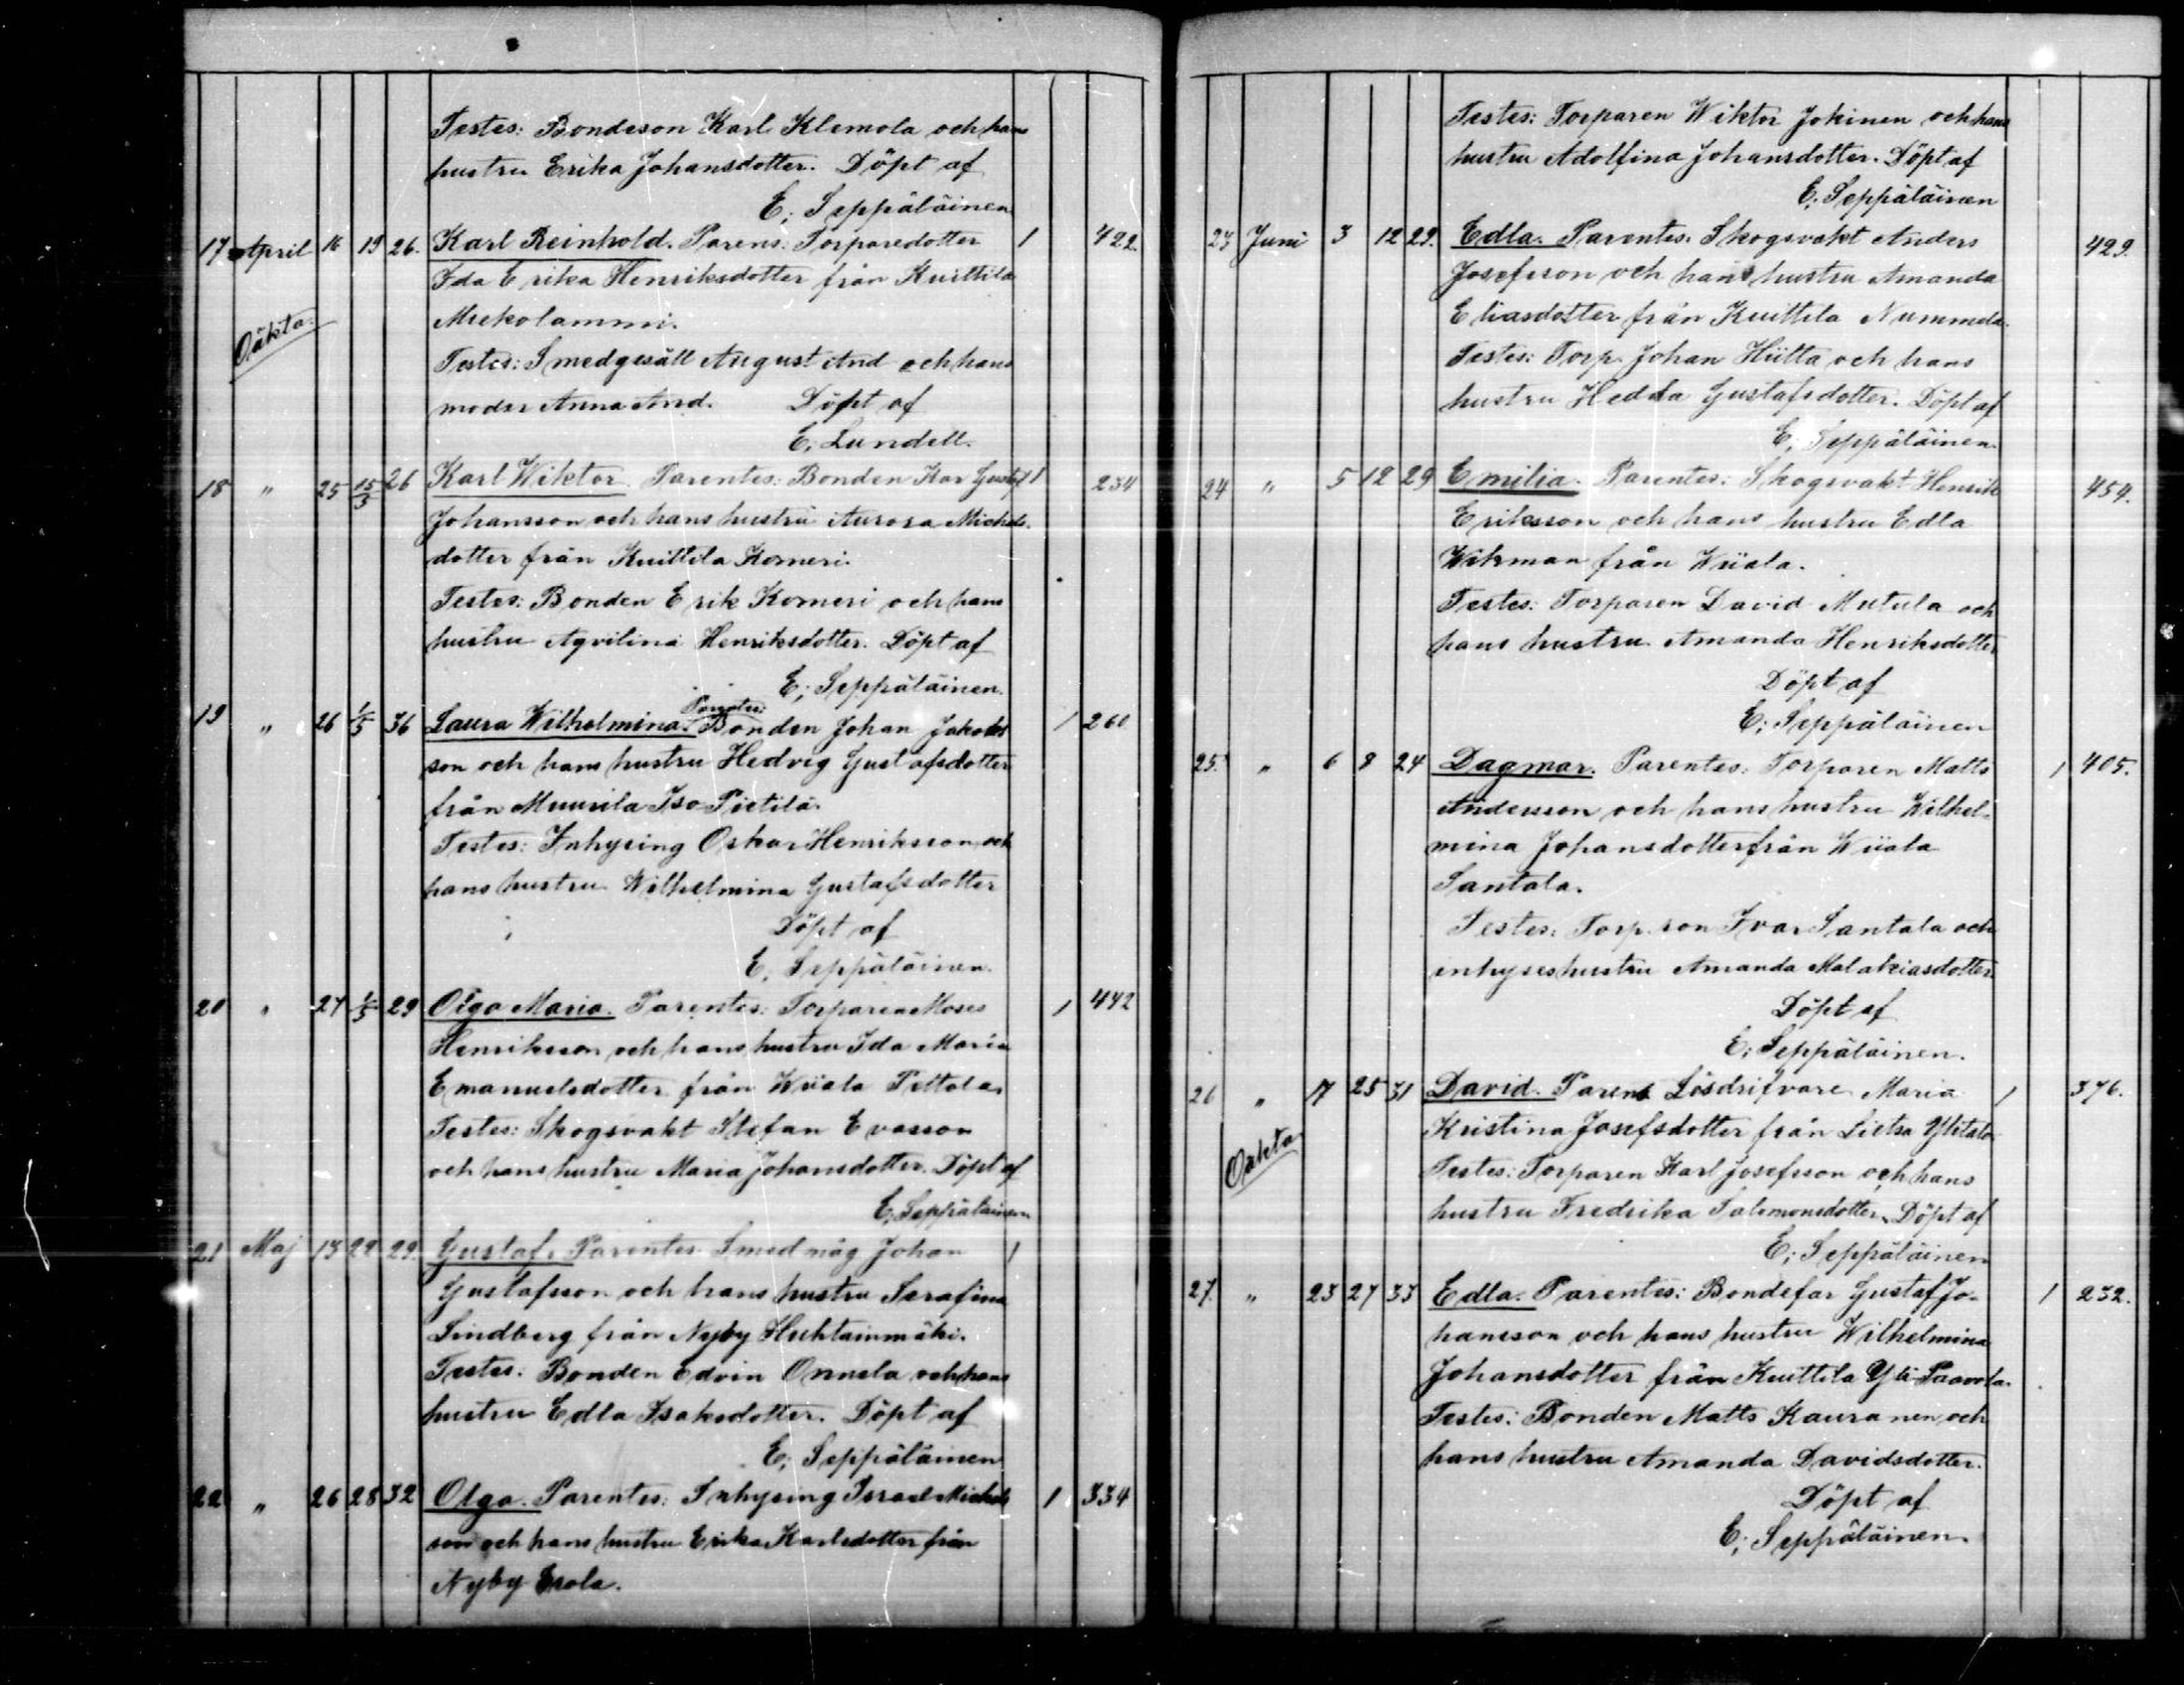 Testes: Bondeson Karl Klemola och hans
hustru Erika Johansdotter. Döpt af
E; Seppäläinen
17 April 16 19 26. Karl Reinhold. Parens: Torparedotter 1 422.
Ida Erika Henriksdotter från Kuittila
Oäkta.
Testes: Smedgesäll August And och hans
moder Anna And. Döpt af
E; Lundell.
18 " 25 15/5 26 Karl Wiktor. Parentes: Bonden Kar Gustaf 1 234
Johansson och hans hustru Aurora Michels-
dotter från Kuittila Komeri.
Testes: Bonden Erik Komeri och hans
hustru Aqvilina Henriksdotter. Döpt af
E; Seppäläinen.
19 " 26 1/5 36 Laura Wilhelmina. Parentes: Bonden Johan Jakobs 1 260
son och hans hustru Hedvig Gustafsdotter
från Muurila Iso Pietilä.
Testes: Inhysing Oskar Henriksson och
hans hustru Wilhelmina Gustafsdotter
Döpt af
E; Seppäläinen.
20 " 27 1/5 29 Olga Maria. Parentes: Torparen Moses 1 442
Henriksson och hans hustru Ida Maria
Emanuelsdotter från Wiiala
Testes: Skogsvakt Stefan Evasson
och hans hustru Maria Johansdotter. Döpt af
E; Seppäläinen
21 Maj 13 29. Gustaf. Parentes Smed måg Johan 1
Gustafsson och hans hustru Serafina
Lindberg från Nyby Huhtainmäki.
Testes: Bonden Edvin Onnela och hans
hustru Edla Isaksdotter. Döpt af
E; Seppäläinen
22 " 26 28 32 Olga. Parentes: Inhysing Israel Michels 1 334
son och hans hustru Erika Karlsdotter från
Nyby Erola.
Testes: Torparen Wiktor Jokinen och hans
hustru Adolfina Johansdotter. Döpt af
E; Seppäläinen
23 Juni 3 12 29. Edla. Parentes: Skogsvakt Anders 429.
Josefsson och hans hustru Amanda
Eliasdotter från Kuittila Nummela.
Testes: Torp. Johan Hiitta och hans
hustru Hedda Gustafsdotter. Döpt af
E; Seppäläinen.
24 " 5 12 29 Emilia. Parentes: Skogsvakt Henrik 454.
Eriksson och hans hustru Edla
Wikman från Wiiala.
Testes: Torparen David Mutula och
hans hustru Amanda Henriksdotter
Döpt af
E; Seppäläinen
25. " 6 8 24 Dagmar. Parentes: Torparen Matts 1 405.
Andersson och hans hustru Wilhel-
mina Johansdotter från Wiiala
Santala.
Testes: Torp. son Ivar Santala och
inhyseshustru Amanda Malakiasdotter.
Döpt af
E; Seppäläinen.
26 " 17 25 31 David. Parens Lösdrifvare Maria 1 376.
Kristina Josefsdotter från Lietsa Ylitalo
Oäkta
Testes: Torparen Karl Josefsson och hans
hustru Fredrika Salomonsdotter. Döpt af
E; Seppäläinen
27. " 23 27 33 Edla. Parentes: Bondefar Gustaf Jo- 1 232.
hansson och hans hustru Wilhelmina
Johansdotter från Kuittila Yli-Paavola.
Testes: Bonden Matts Kauranen och
hans hustru Amanda Davidsdotter.
Döpt af
E; Seppäläinen.